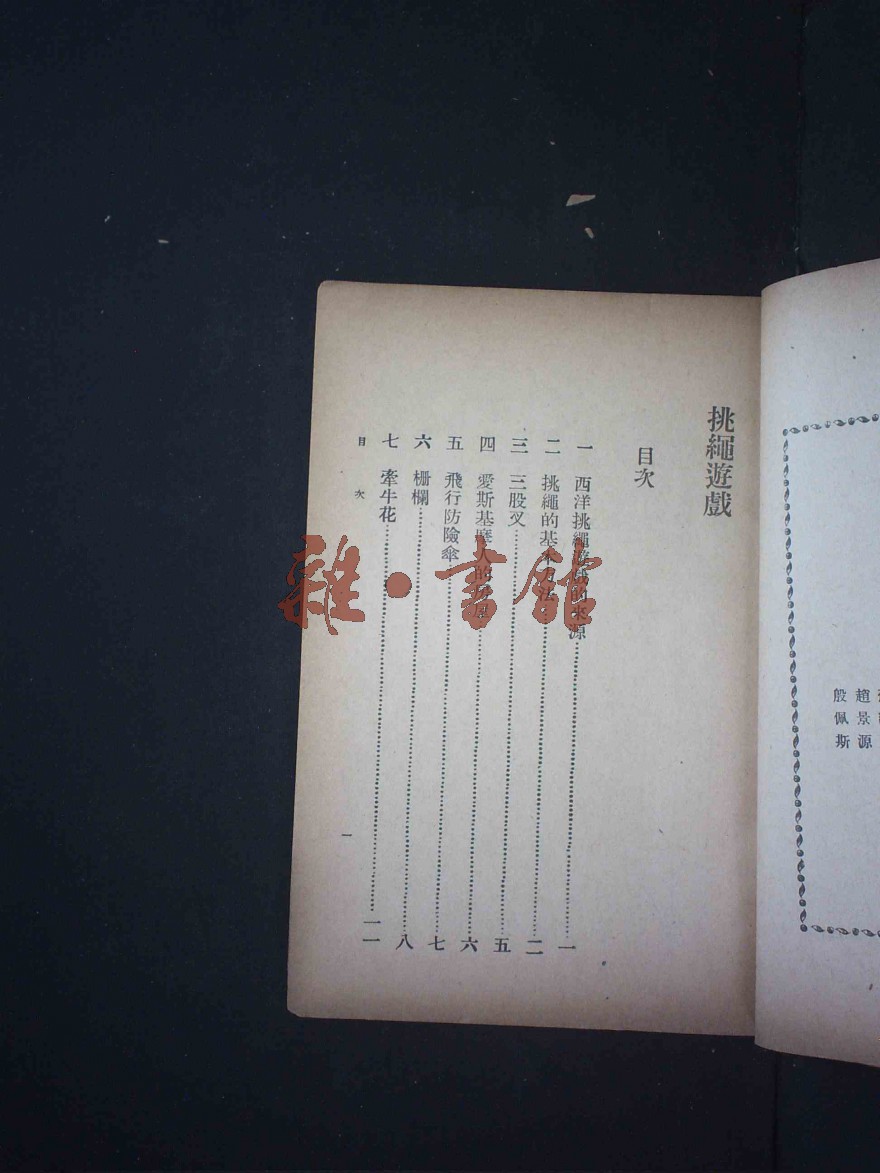 挑繩遊戲
目次
一 西洋挑繩遊戲的來源 一
二 挑繩的基本方法 二
三 三股叉 五
四 愛斯基麽人的房屋 六
五 飛行防險傘 七
六 栅欄 八
七 牽牛花 一一
目次 一
趙景源
殷佩斯
雜·書館